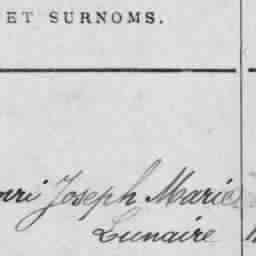 ET SURNOMS.
nri Joseph Marie
Lunaire